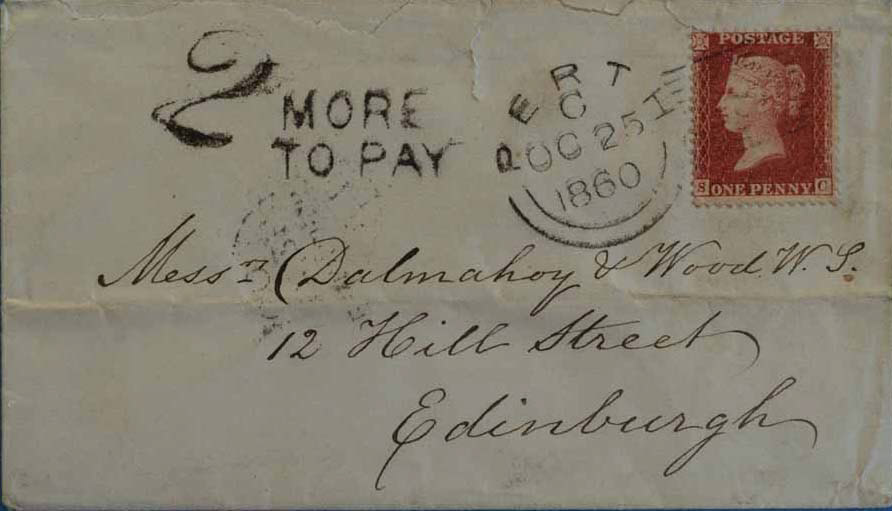 2 MORE
TO PAY
PERTH
C
OC 25
1860
POSTAGE
S ONE PENNY C
Messrs Dalmahoy & Wood W. S.
12 Hill Street
Edinburgh